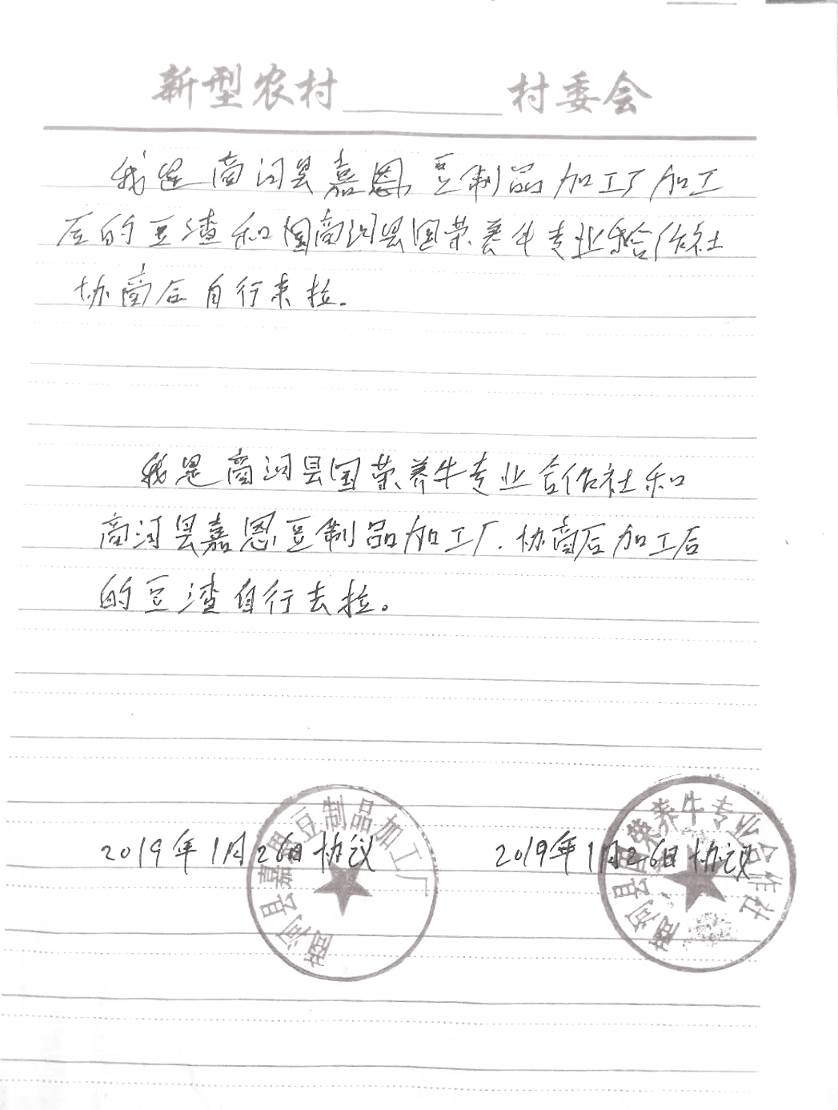 新型农村________村委会
我是商河县嘉恩豆制品加工厂加工
后的豆渣和国商河县国荣养牛专业合作社
协商后自行来拉.
我是商河县国荣养牛专业合作社和
商河县嘉恩豆制品加工厂.协商后加工后
的豆渣自行去拉。
2019年1月26日协议
2019年1月26日协议
商河县嘉恩豆制品加工厂
商河县国荣养牛专业合作社